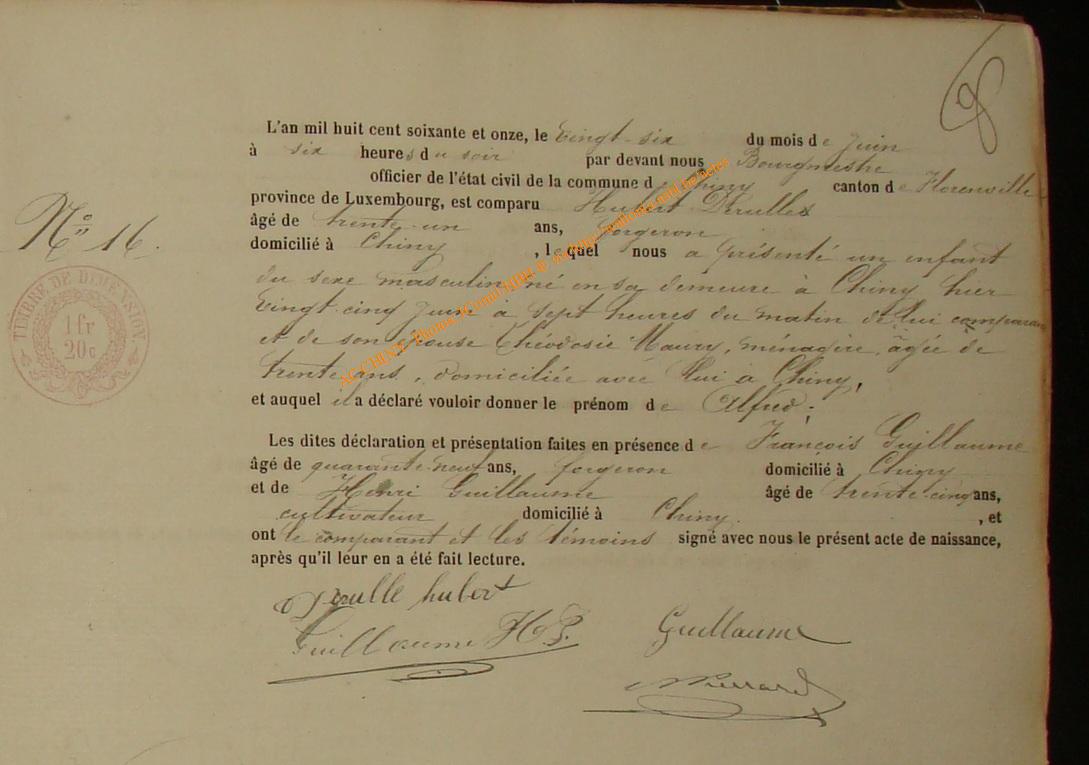 8
L'an mil huit cent soixante et onze, le vingt-six du mois de juin
à six heures du soir par devant nous Bourgmestre
officier de l'état civil de la commune d Chiny canton de Florenville
province de Luxembourg, est comparu Hubert Derulle
N° 16.
âgé de trente-un ans, forgeron
domicilié à Chiny, lequel nous a présenté un enfant
du sexe masculin, né en sa demeure à Chiny hier
vingt-cinq juin à sept heures du matin de lui comparant
et de son épouse Théodosie Maury, ménagère, âgée de
trente ans, domiciliée avec lui à Chiny,
et auquel il a déclaré vouloir donner le prénom de Alfred;
TIMBRE DE DIMENSION.
1 fr
20 c
Les dites déclaration et présentation faites en présence de François Guillaume
âgé de quarante-neuf ans, forgeron domicilié à Chiny
et de Henri Guillaume âgé de trente-cinq ans,
cultivateur domicilié à Chiny. , et
ont le comparant et les témoins signé avec nous le présent acte de naissance,
après qu'il leur en a été fait lecture.
Derulle hubert
Guillaume H. J. Guillaume
AC CHINY Photos